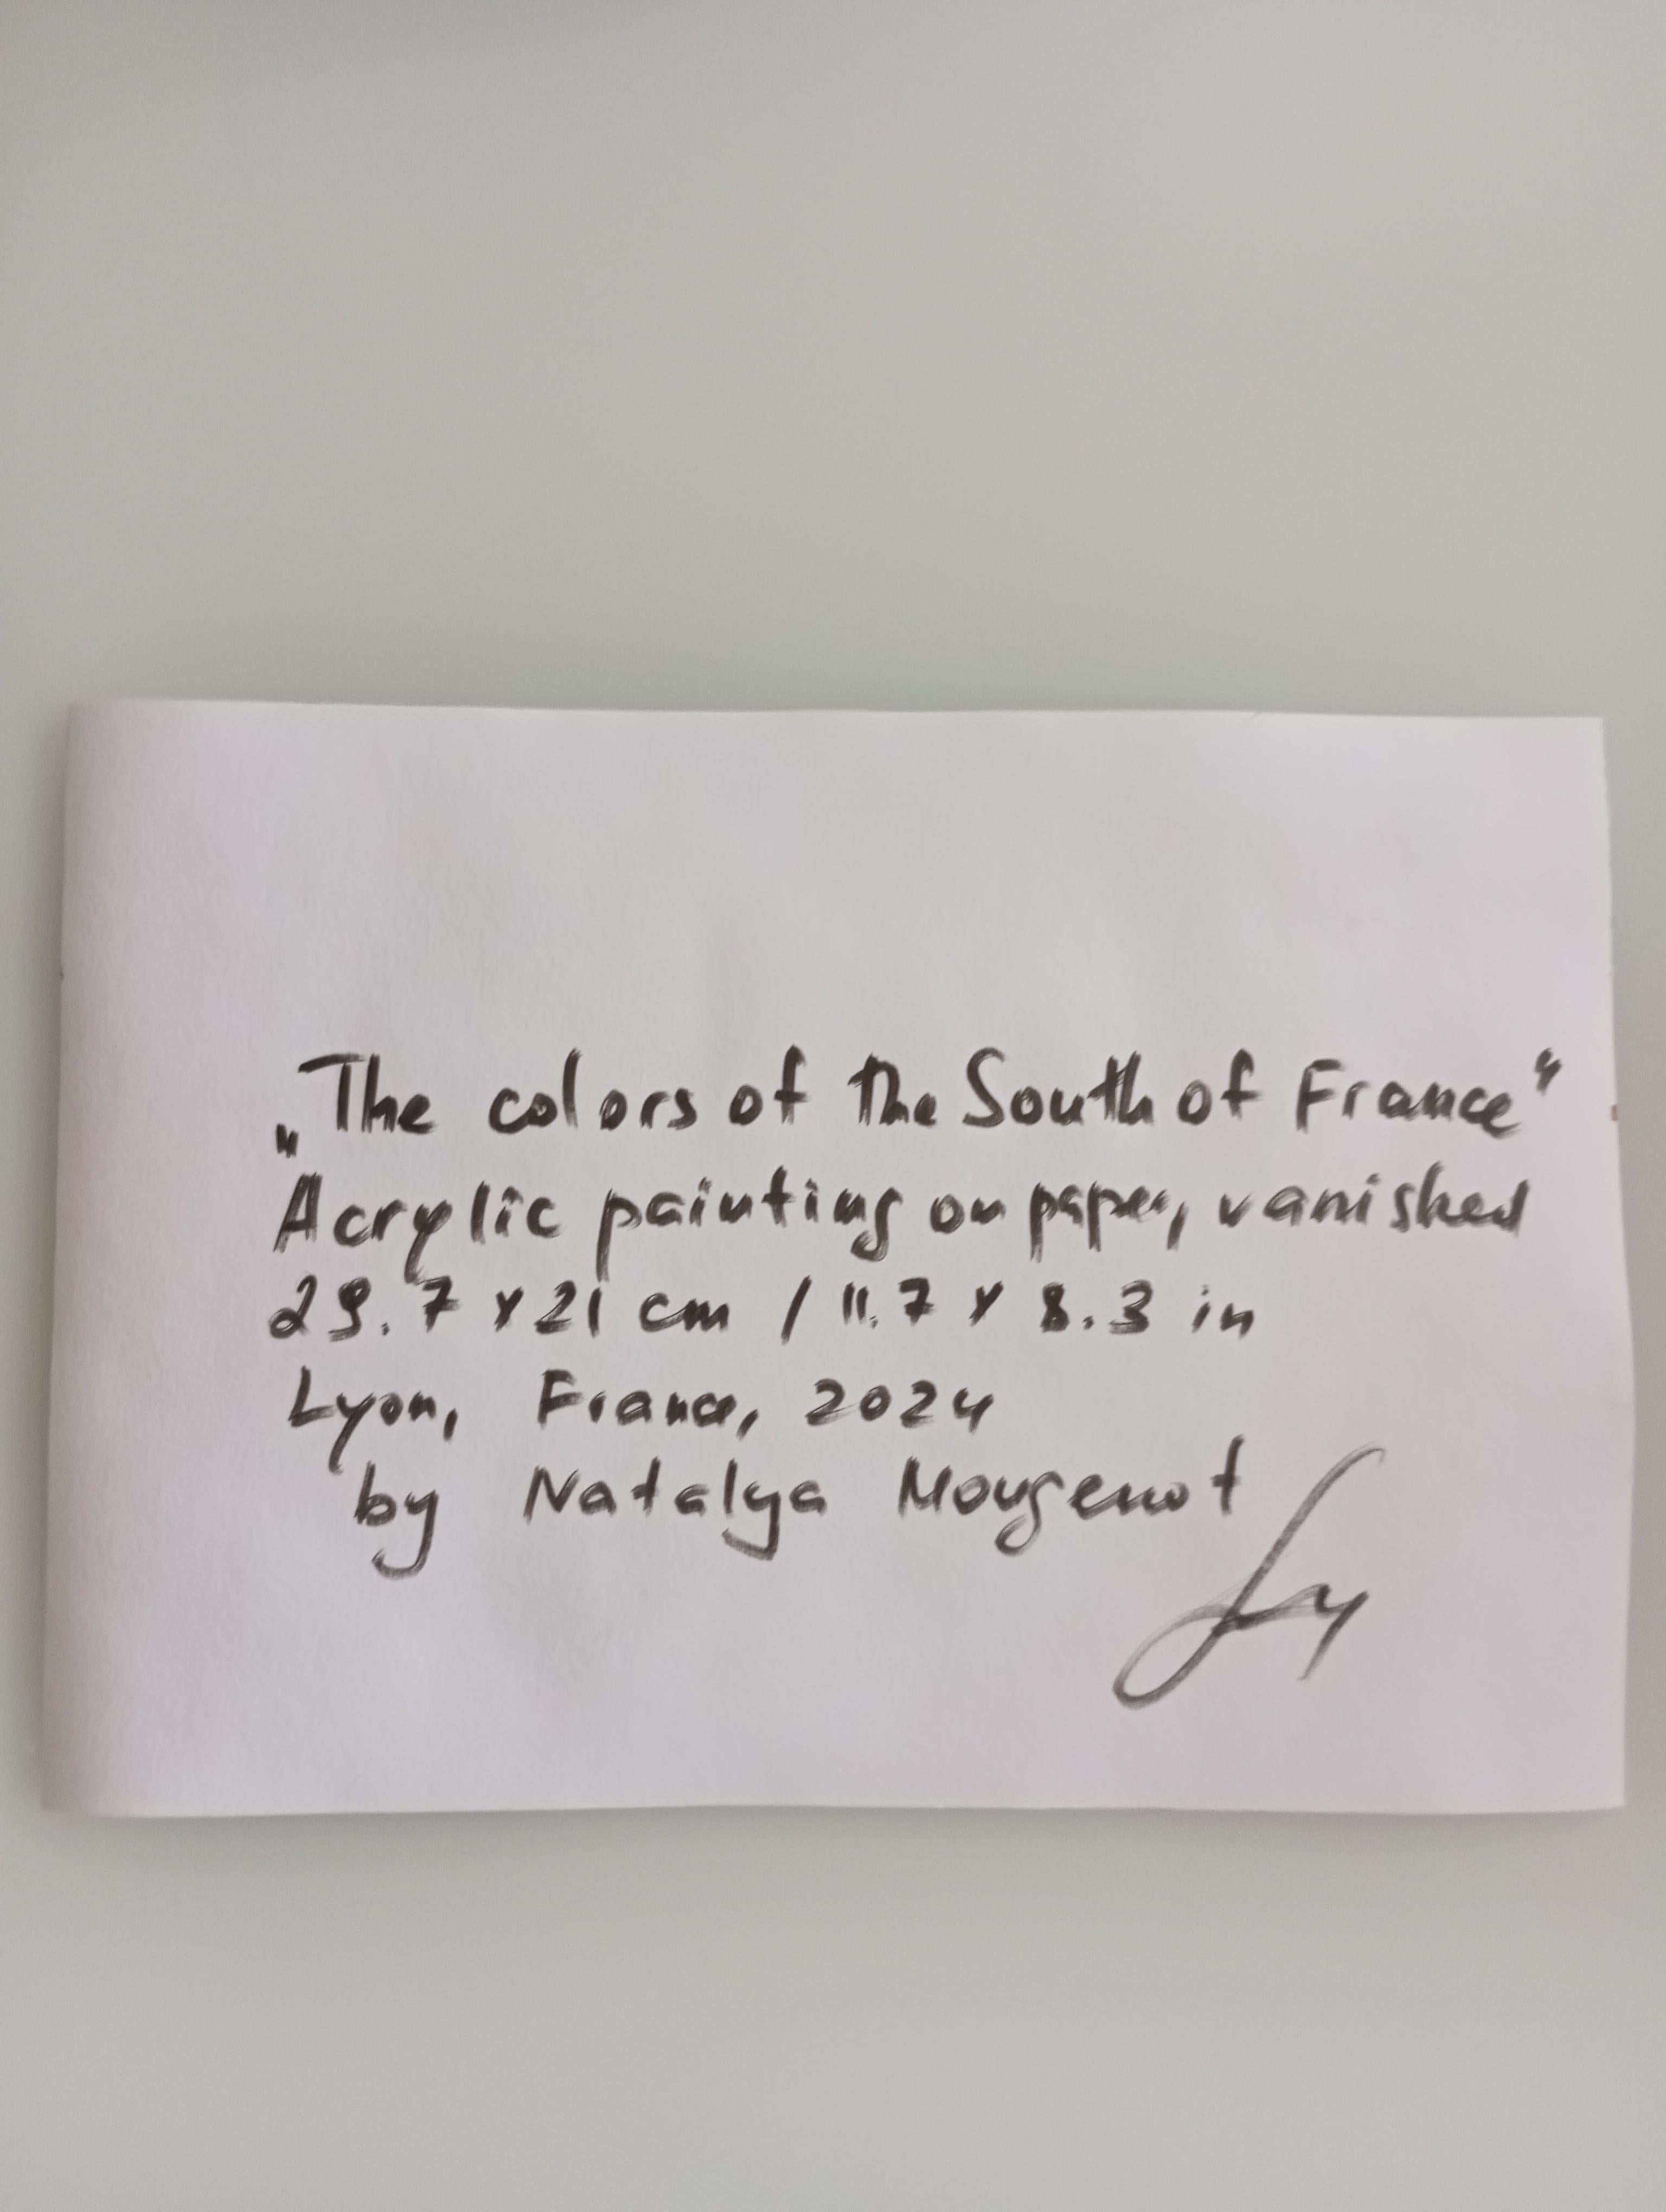 „The colors of the South of France“
Acrylic painting on paper, vanished
29.7 x 21 cm / 11.7 x 8.3 in
Lyon, France, 2024
by Natalya Mougenot